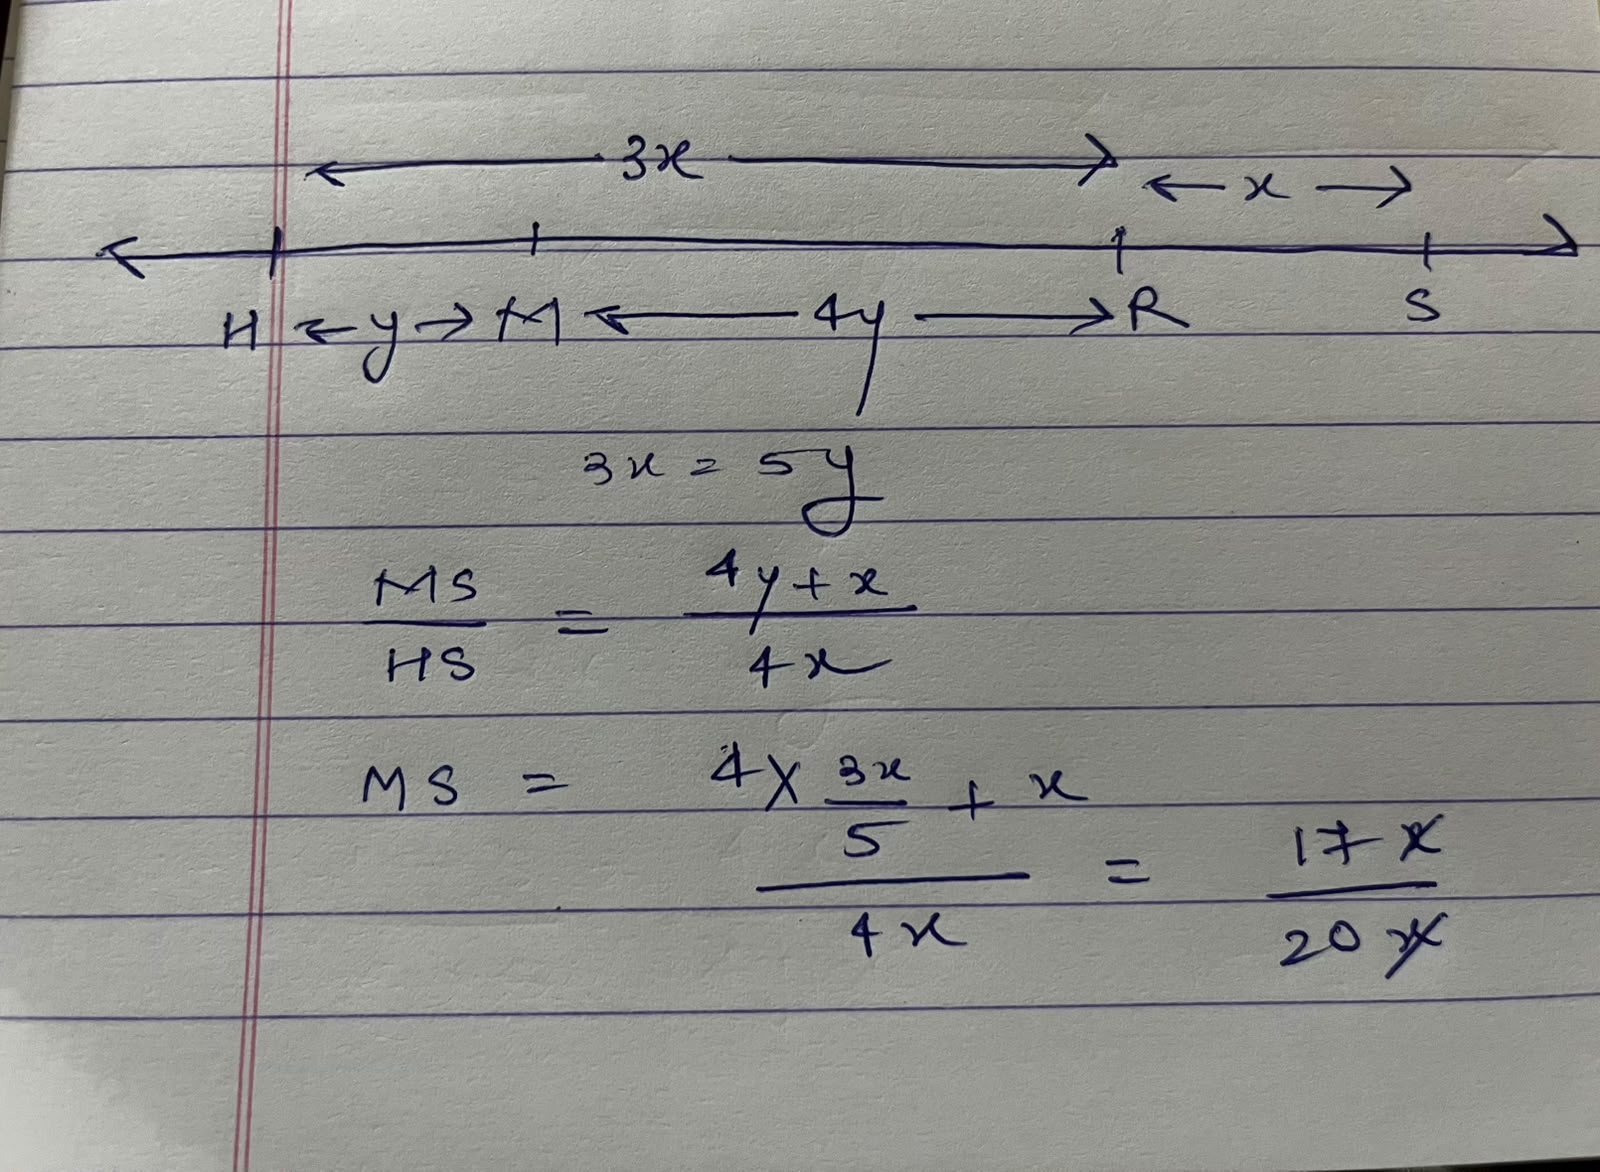 ← 3x → ← x →
H ← y → M ← 4y → R S
3x = 5y
MS/HS = (4y + x)/(4x)
MS = (4 × 3x/5 + x)/(4x) = 17x/20x